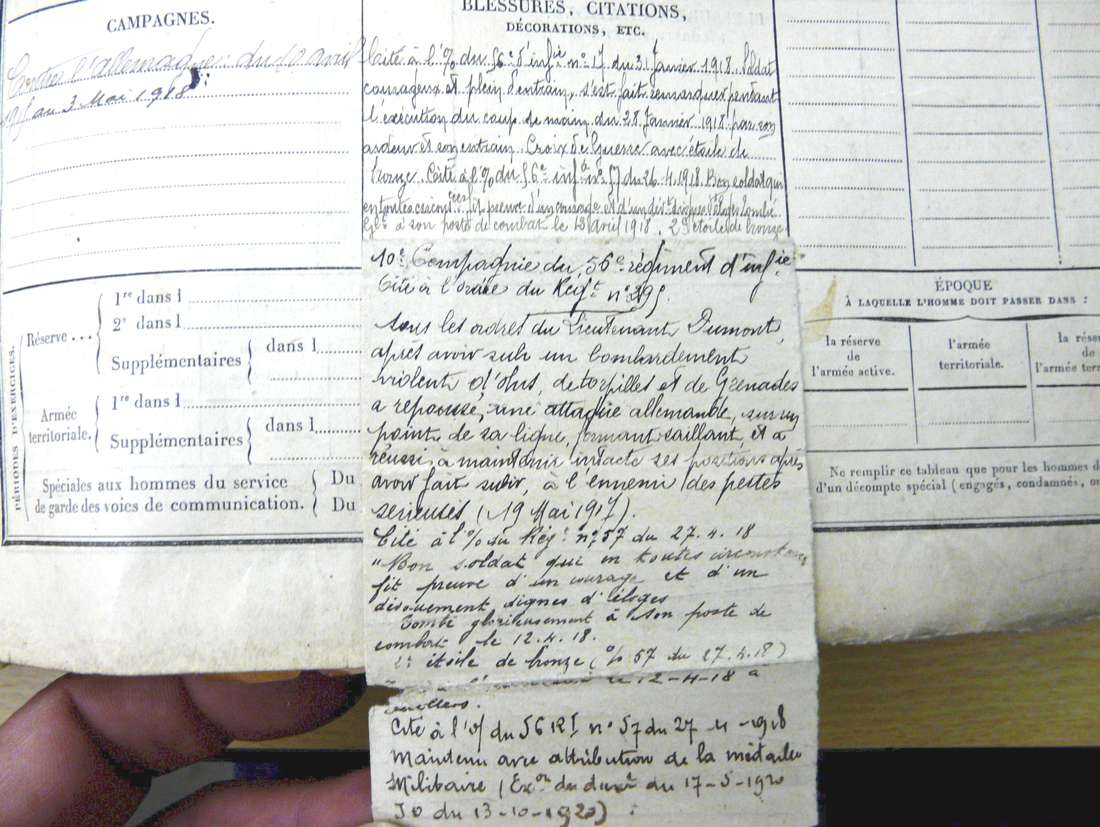 CAMPAGNES.
Contre l'allemagne: du 10 avril
au 3 Mai 1918
BLESSURES, CITATIONS,
DÉCORATIONS, ETC.
Cité à l'% du 56e d'infie n° 17 du 31 Janvier 1918. Soldat
courageux et plein d'entrain, s'est fait remarquer pendant
l'exécution du coup de main du 28 Janvier 1918 par son
ardeur et son entrain. Croix de Guerre avec étoile de
bronze. Cité à l'% du 56e infie n° 57 du 26.4.1918. Bon soldat qui
en toutes circonces fit preuve d'un courage et d'un dévt dignes d'éloges. Tombé
à son poste de combat le 12 avril 1918. 2e étoile de bronze
10e Compagnie du 56e régiment d'infie
Cité à l'Ordre du Regt n°
sous les ordres du Lieutenant Dumont,
après avoir subi un bombardement
violent d'obus, de torpilles et de Grenades
a repoussé, une attaque allemande, sur un
point de sa ligne, formant saillant, et a
réussi à maintenir intacte ses positions après
avoir fait subir, à l'ennemi des pertes
serieuses (19 Mai 1917).
Cité à l'% du Régt n° 57 du 27.4.18
"Bon soldat qui en toutes circonstances
fit preuve d'un courage et d'un
dévouement dignes d'éloges
Tombé glorieusement à son poste de
combat le 12.4.18.
étoile de bronze (% 57 du 27.4.18)
le 12-4-18 à
Cité à l'o/ du 56 RI n° 57 du 27 4 -1918
Maintenu avec attribution de la médaille
Militaire (Exon du du 17-5-1920
JO du 13-10-1920)
PÉRIODES D'EXERCICES.
Réserve ...
1re dans l
2e dans l
Supplémentaires
dans l
Armée
territoriale.
1re dans l
Supplémentaires
dans l
Spéciales aux hommes du service
de garde des voies de communication.
Du
Du
ÉPOQUE
À LAQUELLE L'HOMME DOIT PASSER DANS :
la réserve
de
l'armée active.
l'armée
territoriale.
la rése
de
l'armée terr
Ne remplir ce tableau que pour les hommes d
d'un décompte spécial (engagés, condamnés, o